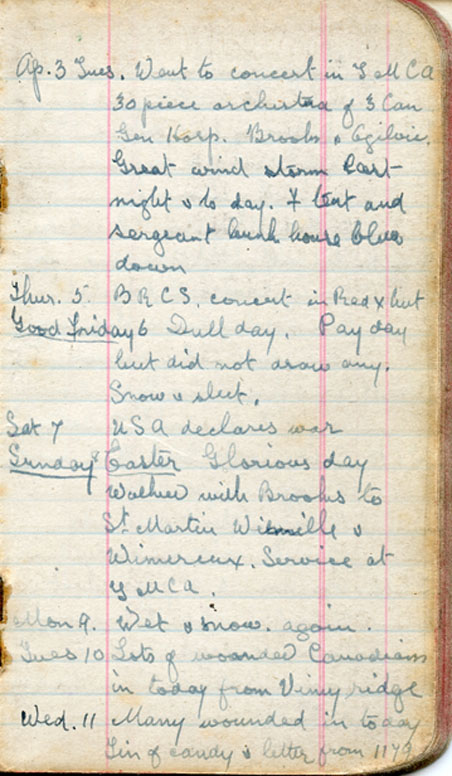 Ap. 3 Tues. Went to concert in YMCA
30 piece orchestra of 3 Can
Gen Hosp. Brooks & Ogilvie.
Great wind storm last
night & to day. Y tent and
sergeant bunk house blew
down
Thur. 5. BRCS. concert in Red X hut
Good Friday 6 Dull day. Pay day
but did not draw any.
Snow & sleet.
Sat 7 USA declares war
Sunday 8 Easter Glorious day
Walked with Brooks to
St. Martin Wiemille &
Wimereux. Service at
YMCA.
Mon 9. Wet & snow. again.
Tues 10 Lots of wounded Canadians
in today from Vimy ridge
Wed. 11 Many wounded in today
Tin of candy & letter from 1179